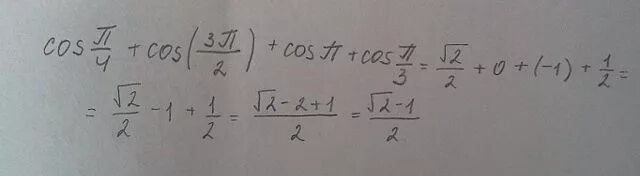 cos π/4 + cos(3π/2) + cos π + cos π/3 = √2/2 + 0 + (-1) + 1/2 =
= √2/2 - 1 + 1/2 = (√2-2+1)/2 = (√2-1)/2